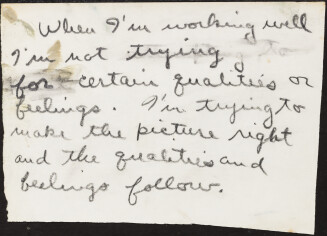 When I'm working well
I'm not trying to
for certain qualities or
feelings. I'm trying to
make the picture right
and the qualities and
feelings follow.